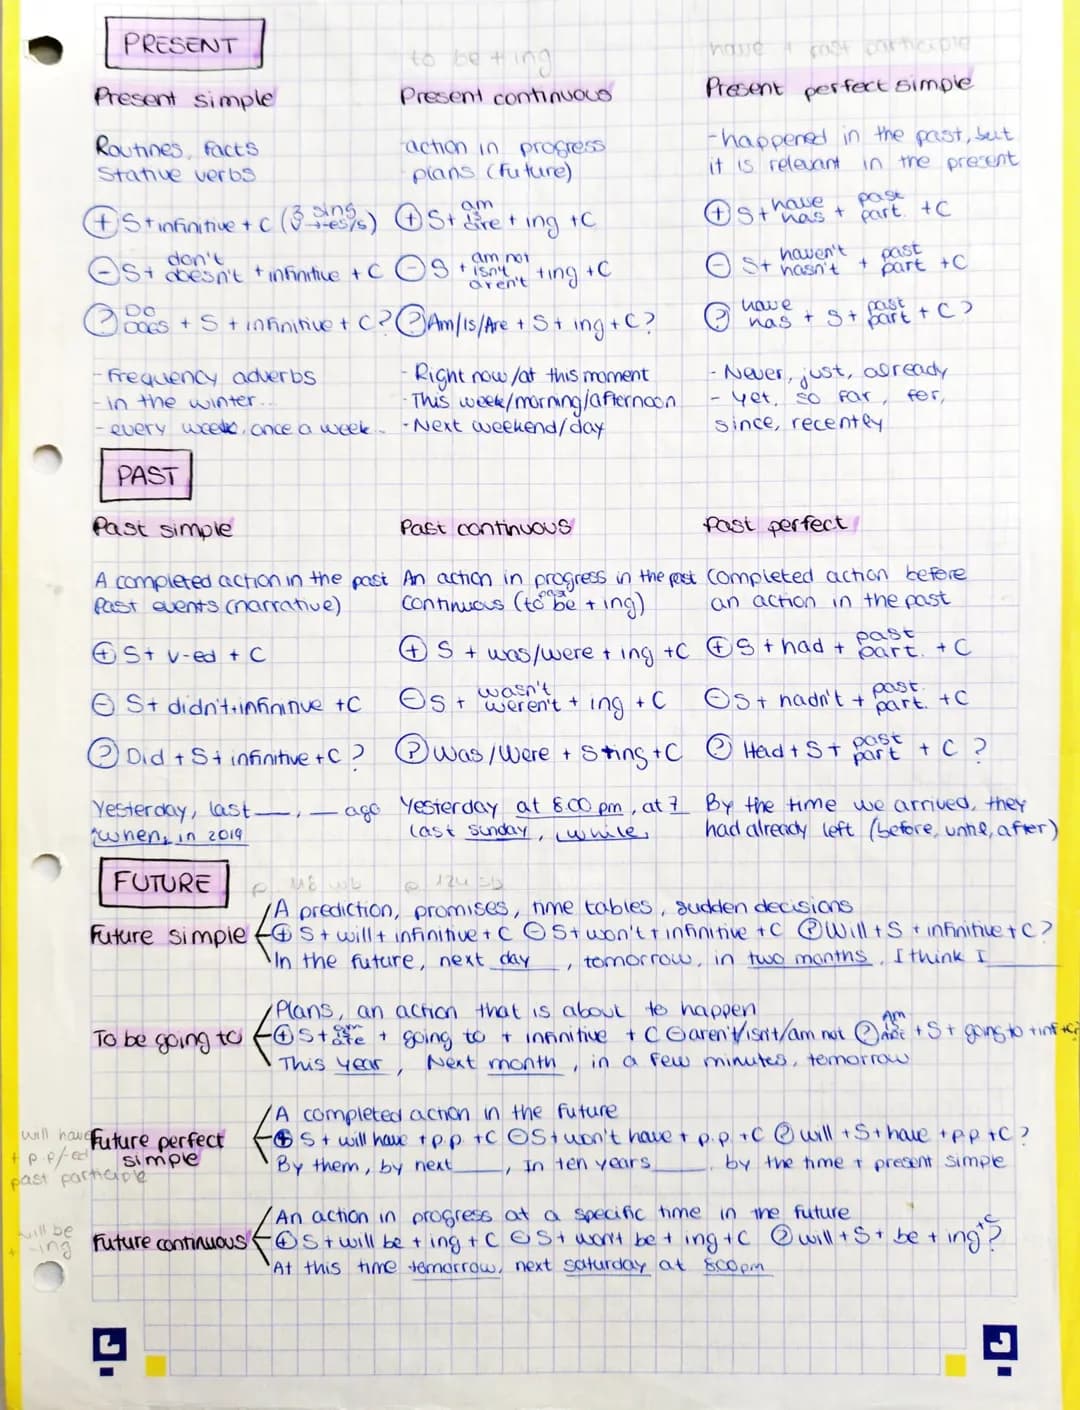 PRESENT
to be + ing
have + past participle
Present simple
Present continuous
Present perfect simple
Routines, facts
Stative verbs
action in progress
plans (future)
- happened in the past, but
it is relevant in the present
⊕ S + infinitive + C (3 sing → -es/s)
⊕ S + am is are + ing + C
⊕ S + have has + past part. + C
⊖ S + don't doesn't + infinitive + C
⊖ S + am not isn't aren't + ing + C
⊖ S + haven't hasn't + past part + C
? Do Does + S + infinitive + C?
? Am/Is/Are + S + ing + C?
? have has + S + past part + C?
- Frequency adverbs
- in the winter...
- every week, once a week..
- Right now/at this moment
- This week/morning/afternoon
- Next weekend/day
- Never, just, already
- yet, so far, for,
since, recently
PAST
Past simple
Past continuous
Past perfect
A completed action in the past
Past events (narrative)
An action in progress in the past
continuous (to be past + ing)
Completed action before
an action in the past
⊕ S + v-ed + C
⊕ S + was/were + ing + C
⊕ S + had + past part. + C
⊖ S + didn't + infininve + C
⊖ S + wasn't weren't + ing + C
⊖ S + hadn't + past part. + C
? Did + S + infinitive + C?
? Was/Were + S + ing + C
? Had + S + past part + C?
Yesterday, last __, __ ago
when, in 2019
Yesterday at 8.00 pm, at 7
last sunday, while,
By the time we arrived, they
had already left (before, until, after)
FUTURE
A prediction, promises, time tables, sudden decisions
Future simple
⊕ S + will + infinitive + C ⊖ S + won't + infinitive + C ? Will + S + infinitive + C?
In the future, next day, tomorrow, in two months, I think I ____
Plans, an action that is about to happen
To be going to
⊕ S + am is are + going to + infinitive + C ⊖ aren't/isn't/am not ? Am Is Are + S + going to + inf + C?
This year, Next month, in a few minutes, tomorrow
A completed action in the future
will have + p.p/-ed past participle
Future perfect simple
⊕ S + will have + p.p. + C ⊖ S + won't have + p.p. + C ? will + S + have + pp + C?
By them, by next ____, In ten years ____, by the time + present simple
An action in progress at a specific time in the future
will be + -ing
Future continuous
⊕ S + will be + ing + C ⊖ S + won't be + ing + C ? will + S + be + ing + C?
At this time tomorrow, next saturday at 8:00pm